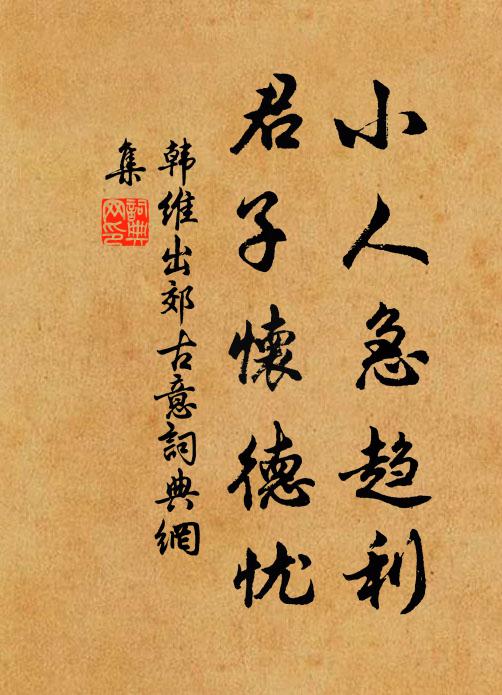 小人急趋利
君子懷德忧
韩维出郊古意詞典網
集
詞典
网印